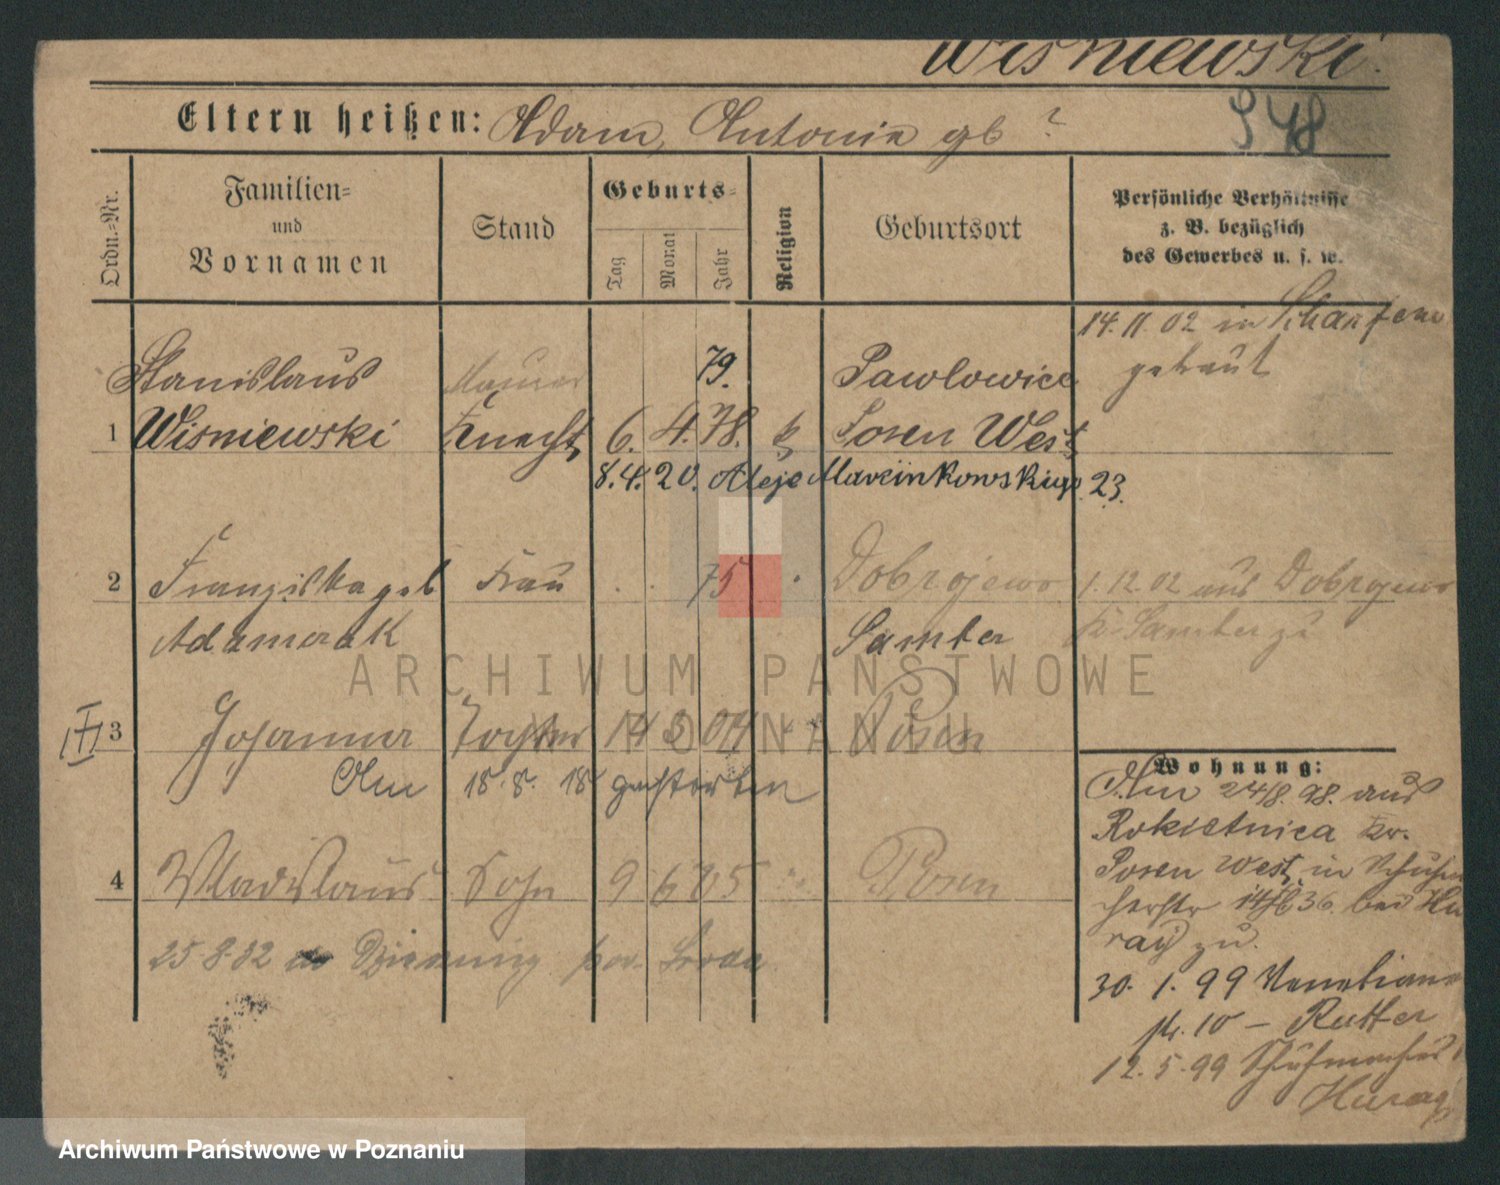 Wisniewski.
948
Eltern heißen: Adam, Antonie gb ?
Ordn.-Nr.
Familien-
und
Vornamen
Stand
Geburts-
Tag
Monat
Jahr
Religion
Geburtsort
Persönliche Verhältnisse
z. B. bezüglich
des Gewerbes u. s. w.
14. 11. 02 in
getraut
Stanislaus Maurer 79. Pawlowice
1 Wisniewski Knecht 6. 4. 78. k Posen West
8.4.20. Aleje Marcinkowskiego 23.
2 Franziska geb Frau 75 Dobrojewo 1. 12. 02 aus Dobrojewo
Adamczak Samter Kr. Samter zu
III
3 Johanna Tochter 14 3 04 Posen
Am 18. 8. 18 gestorben
4 Wladislaus Sohn 9 6 05 Posen
25.8.02 pow. Środa
Wohnung:
Am 24/8. 98. aus
Rokietnica Kr.
Posen West, in Schuhma
cherstr 36 bei Hu
raj zu.
30. 1. 99 Venetianer
str. 10 - Rutter
12. 5. 99 Schuhmacherstr
Huraj
ARCHIWUM PAŃSTWOWE
W POZNANIU
Archiwum Państwowe w Poznaniu